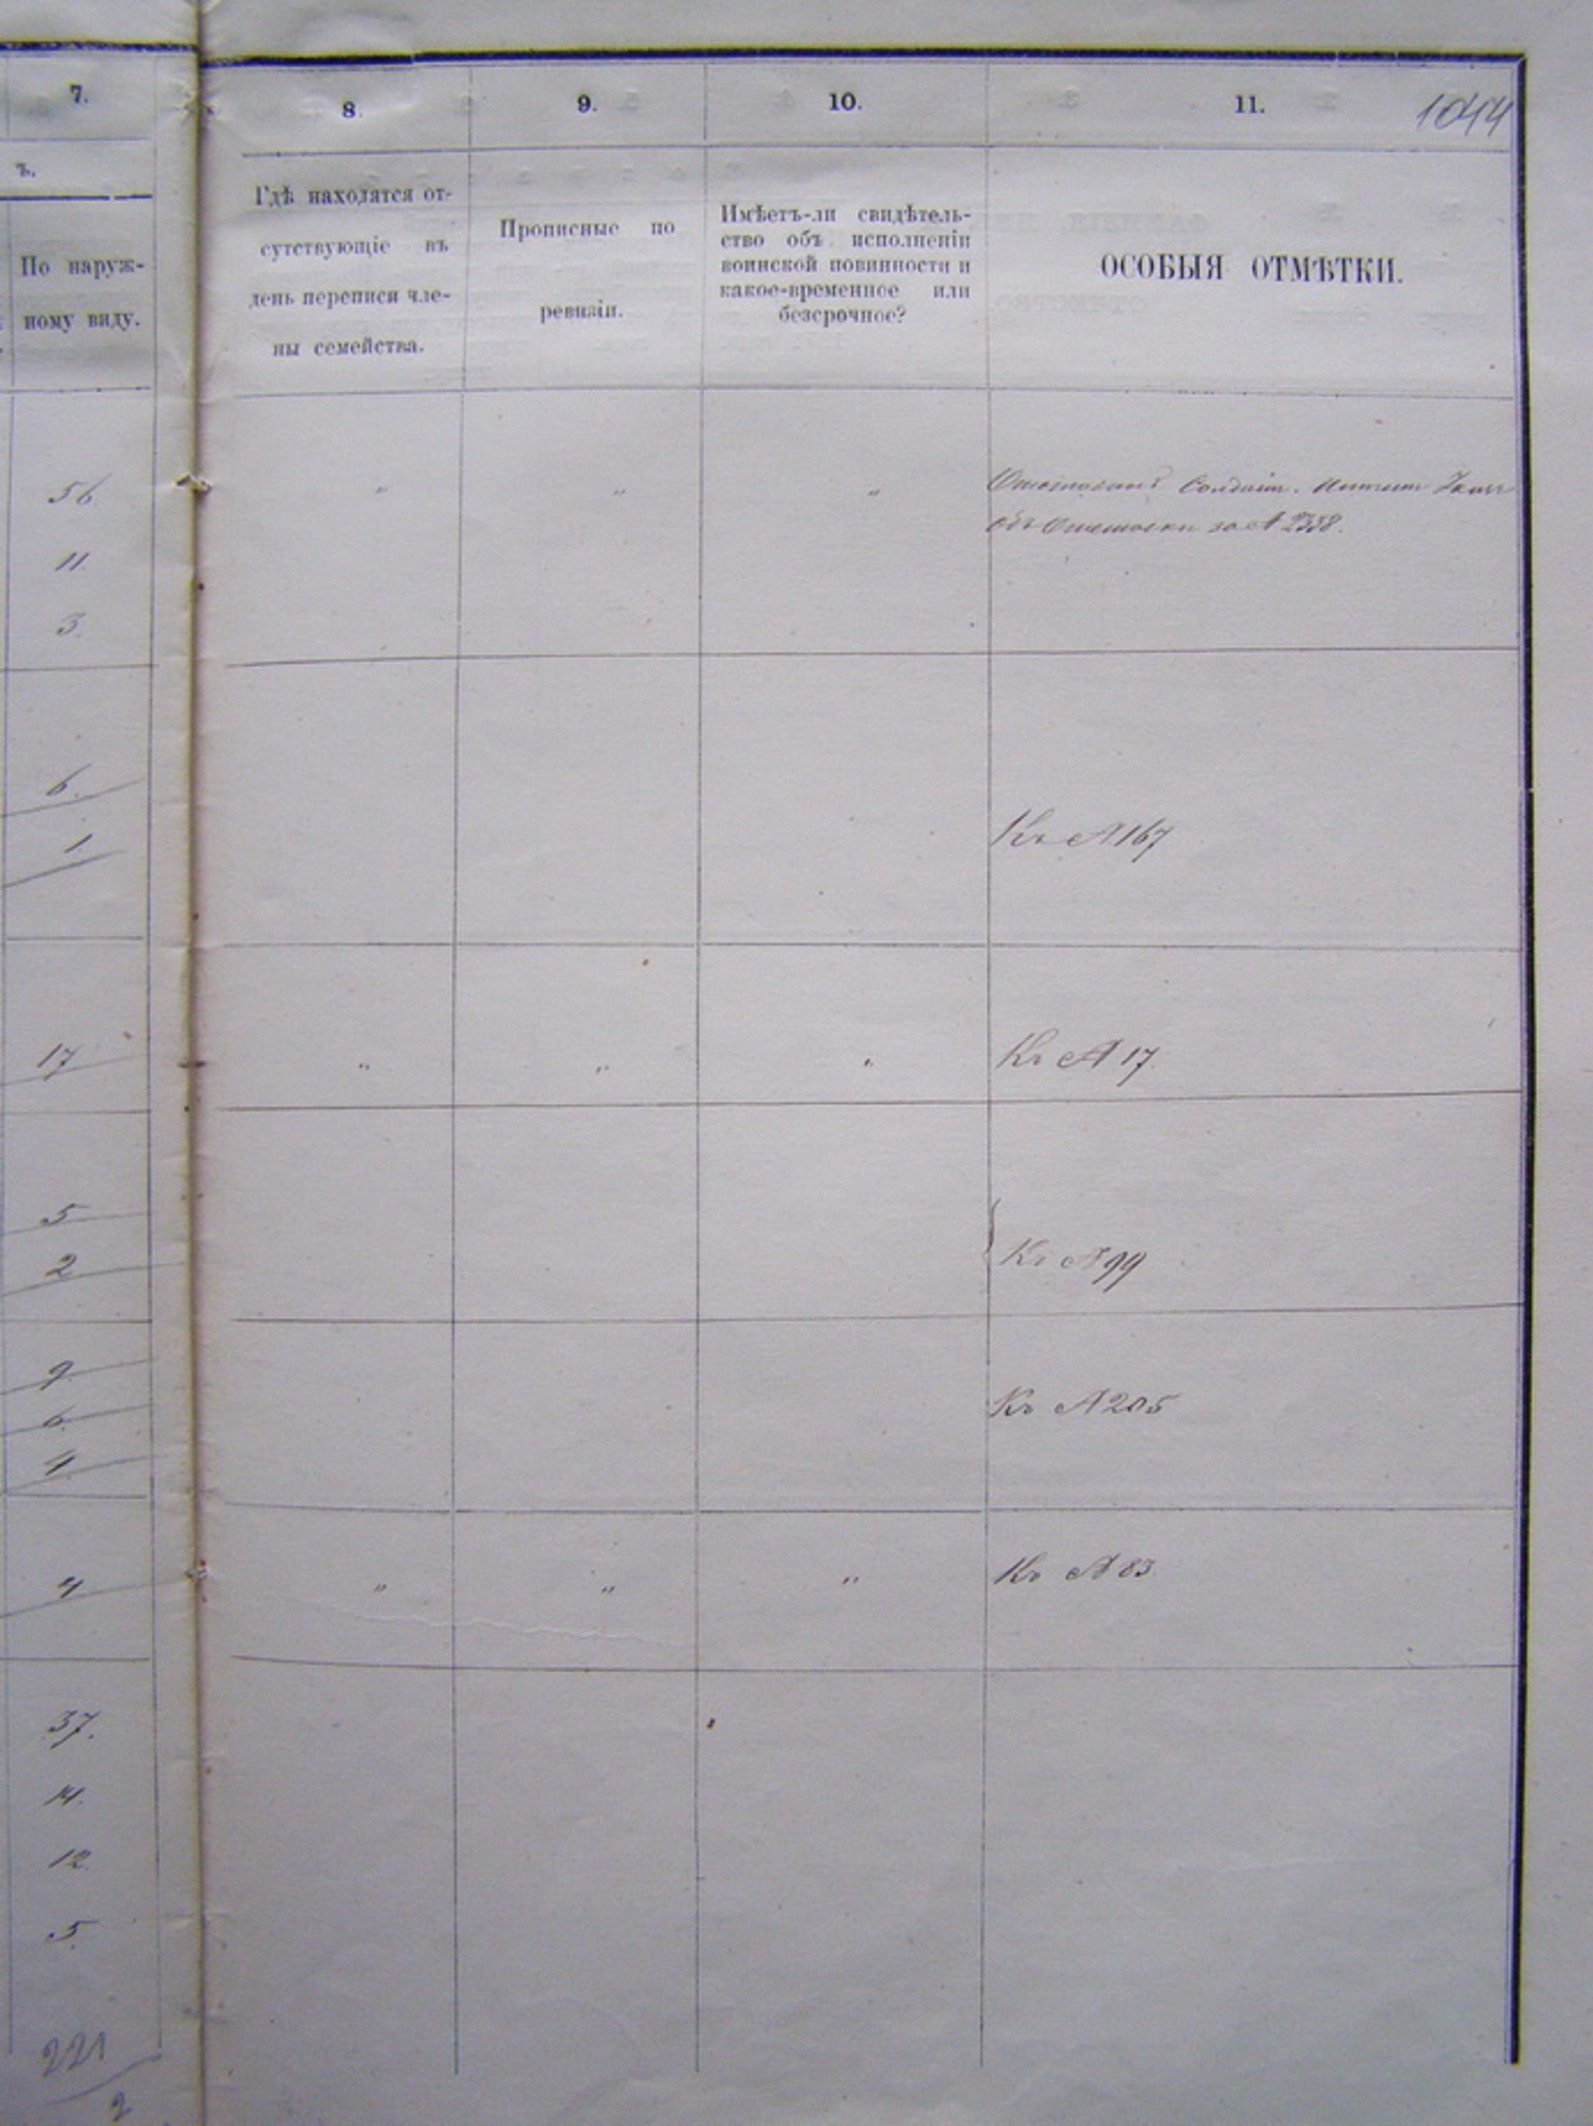 7.
8.
9.
10.
11.
1044
ъ.
По наруж-
ному виду.
Гдѣ находятся от-
сутствующіе въ
день переписи чле-
ны семейства.
Прописные по
ревизіи.
Имѣетъ-ли свидѣтель-
ство объ исполненіи
воинской повинности и
какое-временное или
безсрочное?
ОСОБЫЯ ОТМѢТКИ.
56 " " " Солдат.
11. объ за № 2358.
3.
6.
1. Къ № 167
17 " " " Къ № 17.
5
2 Къ № 99
9.
6. Къ № 205
4
4 " " " Къ № 83
37.
14.
12.
5.
221
2